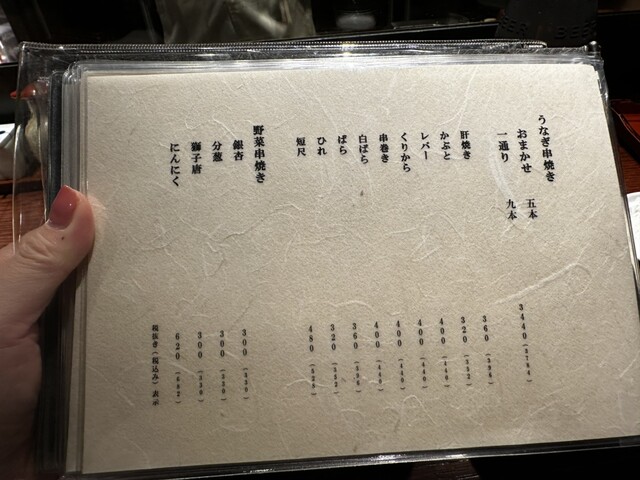 うなぎ串焼き
おまかせ 五本
一通り 九本 3440(3784)
肝焼き 360(396)
かぶと 320(352)
レバー 400(440)
くりから 400(440)
串巻き 400(440)
白ばら 400(440)
ばら 360(396)
ひれ 320(352)
短尺 480(528)
野菜串焼き
銀杏 300(330)
分葱 300(330)
獅子唐 300(330)
にんにく 620(682)
税抜き(税込み)表示